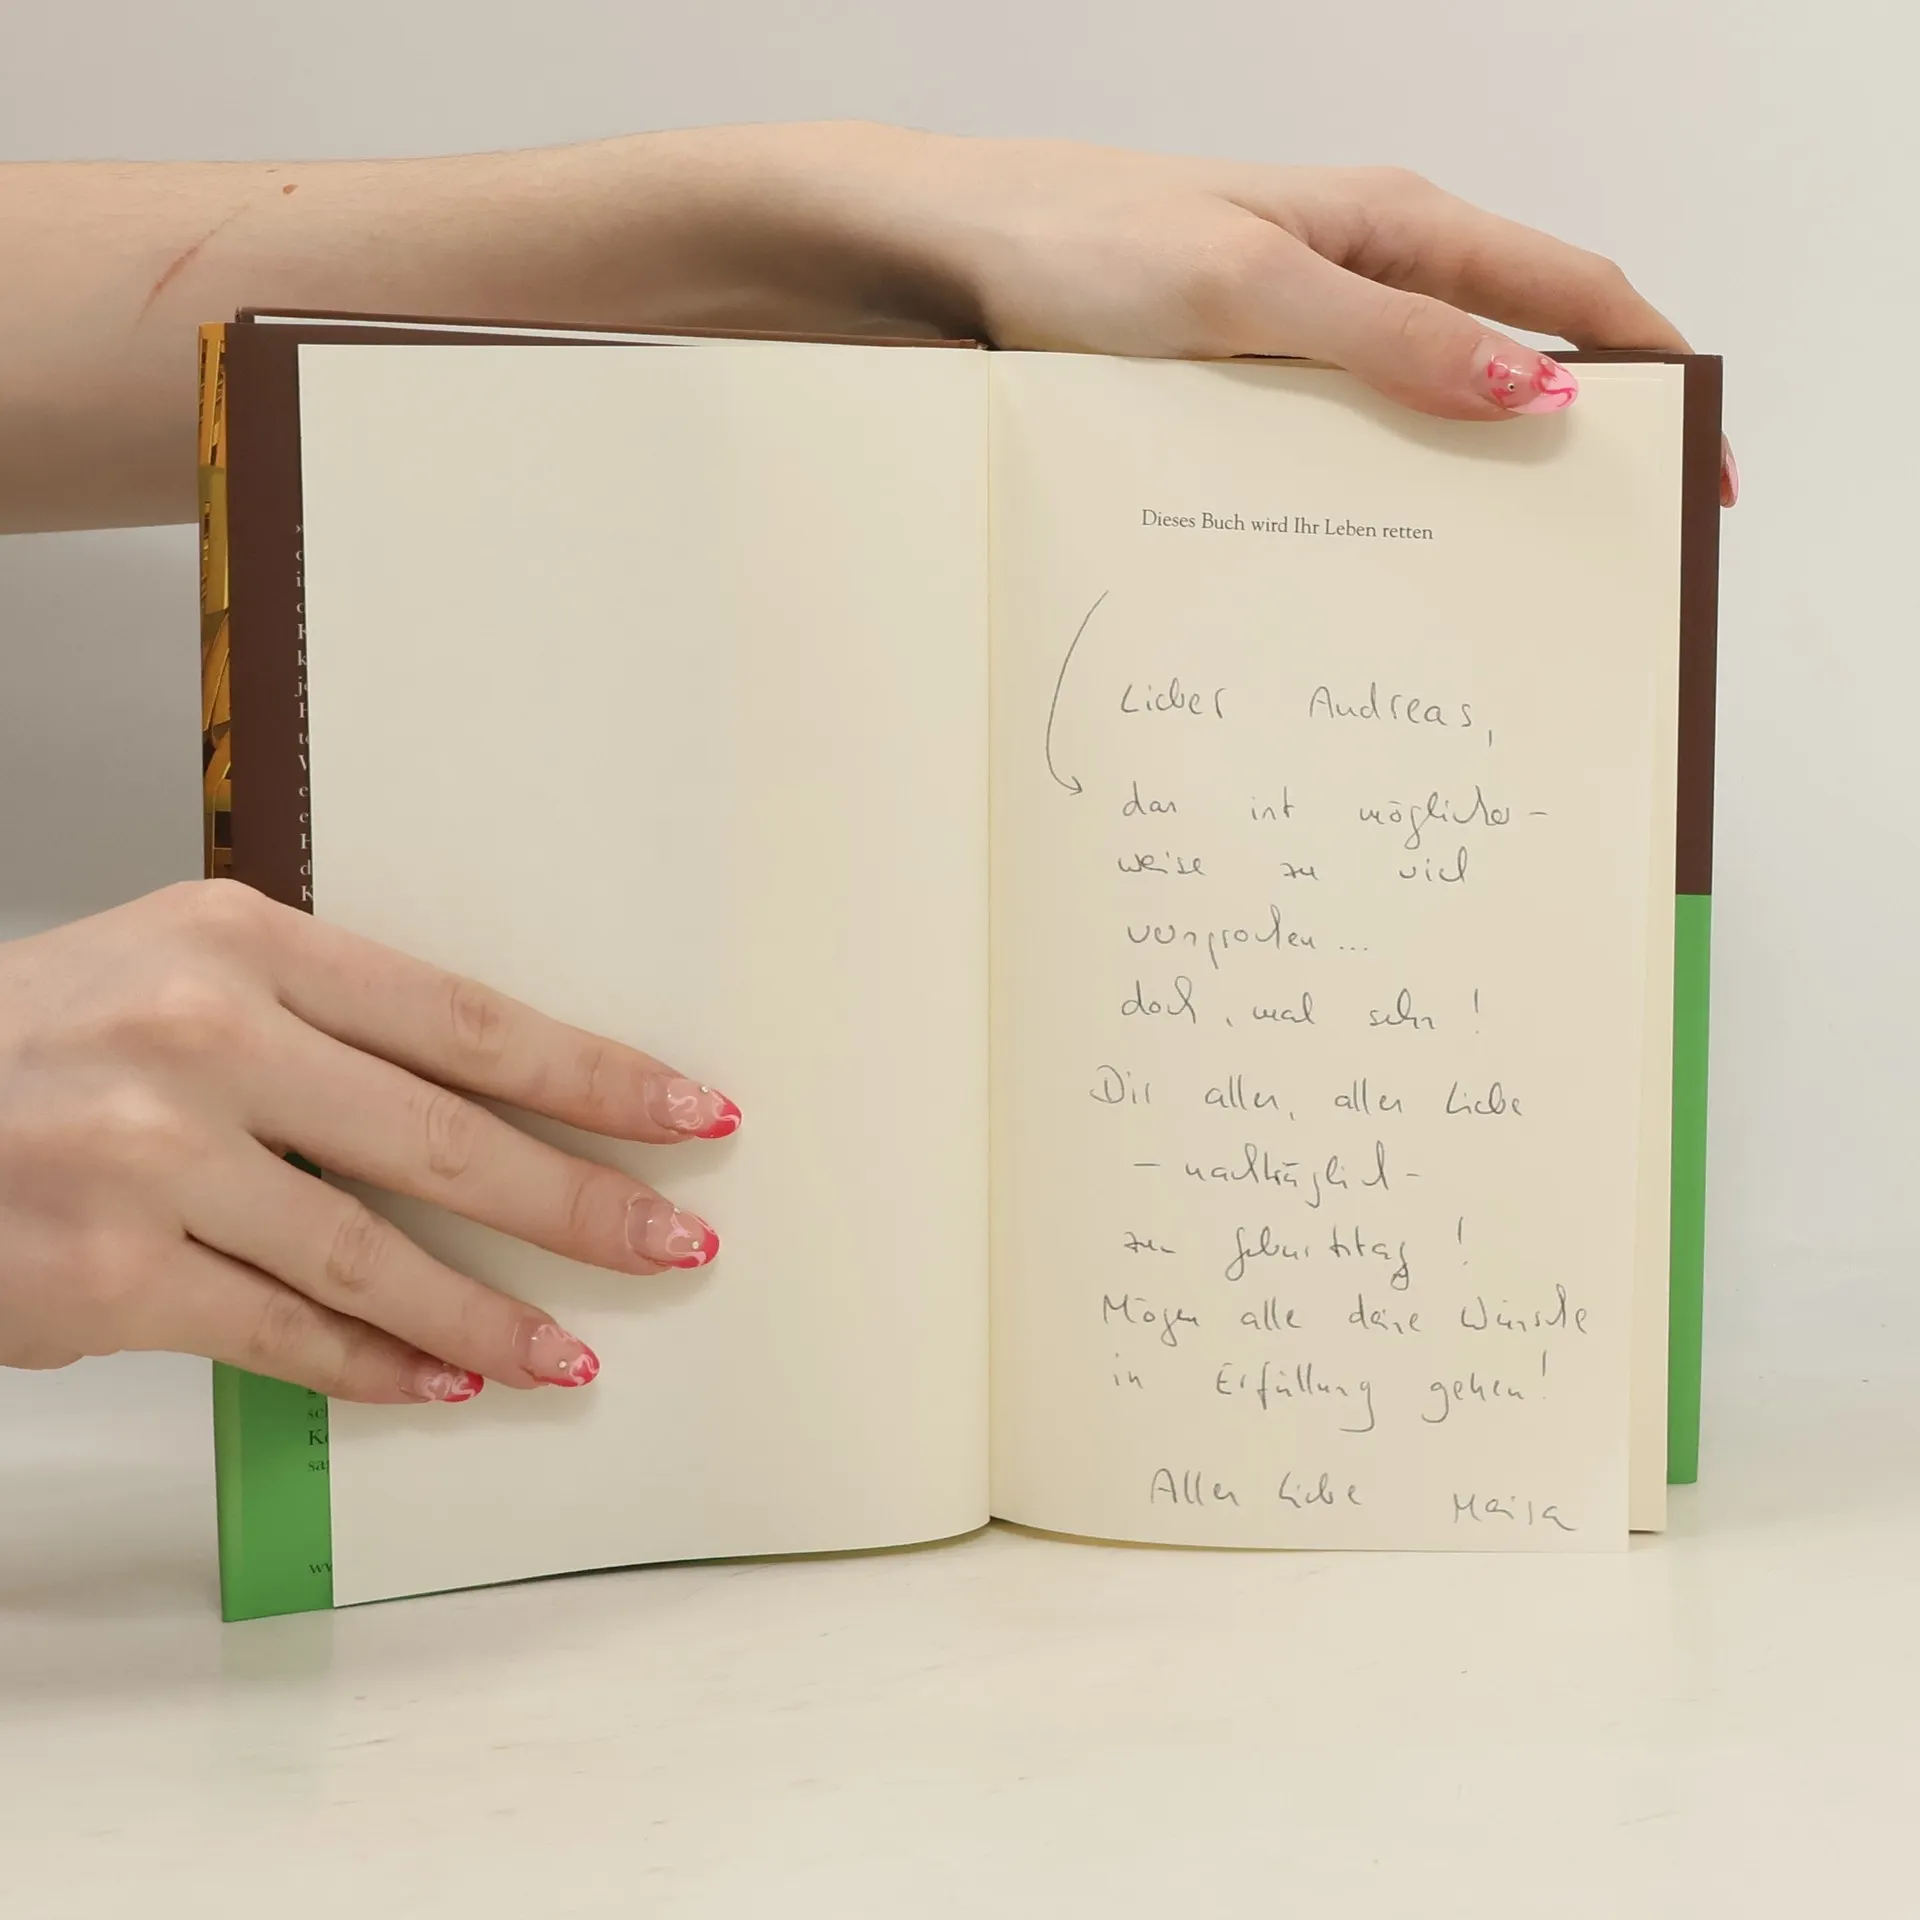 Dieses Buch wird Ihr Leben retten
Lieber Andreas,
das ist möglicher-
weise zu viel
versprochen ...
doch, mal sehn!
Dir alles, alles Liebe
- nachträglich -
zum Geburtstag!
Mögen alle deine Wünsche
in Erfüllung gehen!
Alles Liebe